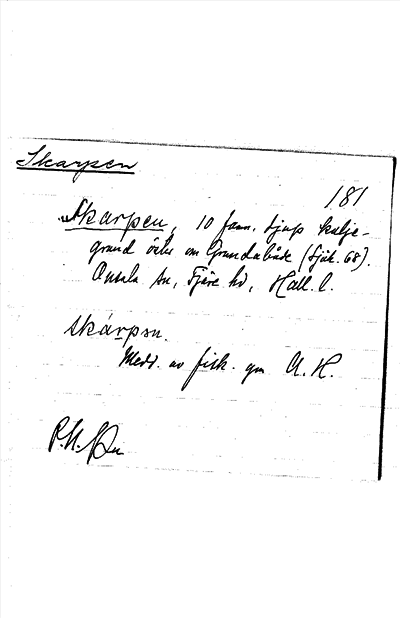 Skarpen
181
"Skarpen, 10 famn. djup kalje-
grund öster om Grundabåde (Sjök. 68).
Onsala sn, Fjäre hd, Hall. l.
skárpən.
Medd. av fisk. gm A. H.